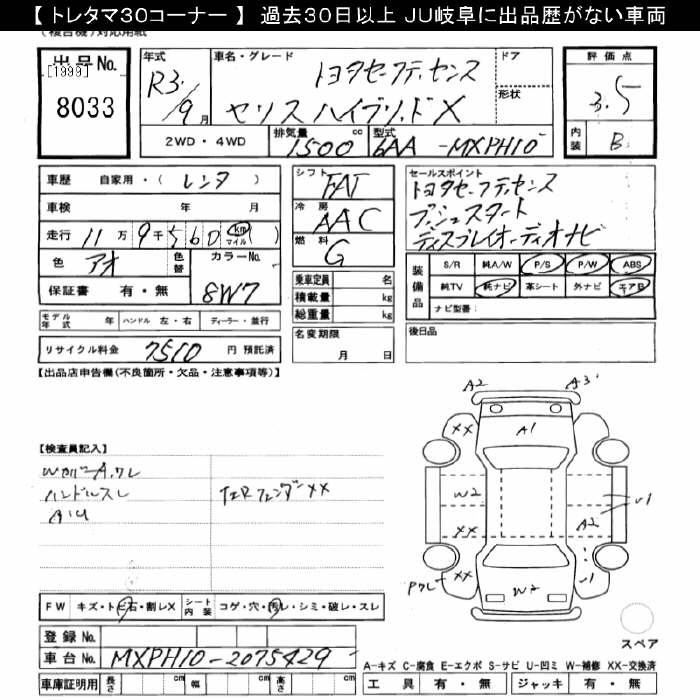 【 トレタマ30コーナー 】 過去30日以上 JU岐阜に出品歴がない車両
(複合機)対応用紙
出品No.
[1999]
8033
年式 R3. 9月
車名・グレード トヨタセーフティセンス
ヤリス ハイブリッドX
ドア
形状
評価点
3.5
内装 B
2WD・4WD
排気量 1500 cc
型式 6AA-MXPH10
車歴 自家用・( レンタ )
車検 年 月
走行 11万 9千 560 km マイル
色 アオ
色替
カラーNo. 8W7
保証書 有・無
モデル年式 年
ハンドル 左・右
ディーラー・並行
リサイクル料金 7510 円 預託済
シフト FAT
冷房 AAC
燃料 G
乗車定員 名
積載量 kg
総重量 kg
名変期限
月 日
セールスポイント
トヨタセーフティセンス
プッシュスタート
ディスプレイオーディオナビ
装備品
S/R 純A/W P/S P/W ABS
純TV 純ナビ 革シート 外ナビ エアB
ナビ型番:
後日品
【出品店申告欄(不良箇所・欠品・注意事項等)】
【検査員記入】
ハンドルスレ
XX
A2
A3
XX
A1
W2
U1
XX
A2
XX
W2
U1
FW キズ・トビ石・割レX
シート内装 コゲ・穴・汚レ・シミ・破レ・スレ
スペア
登録No.
車台No. MXPH10-2075429
A-キズ C-腐食 E-エクボ S-サビ U-凹ミ W-補修 XX-交換済
車庫証明用 長さ cm 幅 cm 高さ cm
工具 有・無 ジャッキ 有・無